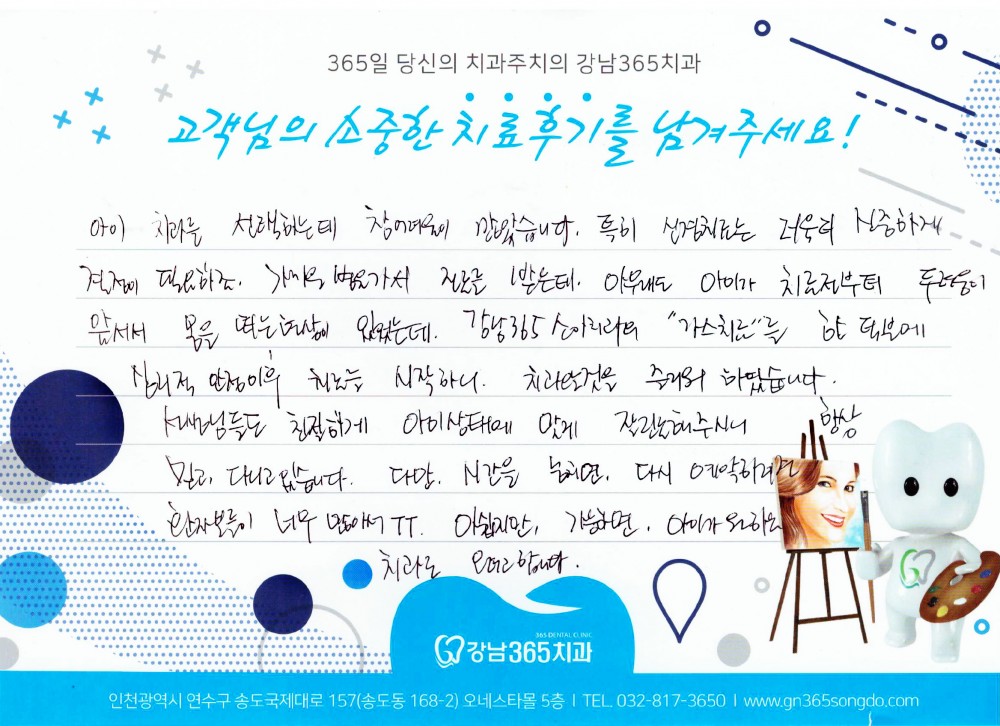 365일 당신의 치과주치의 강남365치과
고객님의 소중한 치료후기를 남겨주세요!
아이 치과를 선택하는데 참 어려움이 많았습니다. 특히 신경치료는 더욱더 신중하게
결정이 필요하죠. 가까운 병원가서 진료를 받는데. 아무래도 아이가 치료전부터 두려움이
앞서서 몸을 떠는 현상이 있었는데. 강남365 소아치과의 "가스치료"를 한 덕분에
심리적 안정이후 치료를 시작하니. 치과라는것을 즐거워 하였습니다.
선생님들도 친절하게 아이상태에 맞게 잘 진료해주시니 항상
믿고, 다니고 있습니다. 다만, 시간을 늦으면, 다시 예약하려면
환자분들이 너무 많아서 TT. 아쉽지만, 가능하면, 아이가 원하는
치과로 오려고 합니다.
365 DENTAL CLINIC
강남365치과
인천광역시 연수구 송도국제대로 157(송도동 168-2) 오네스타몰 5층 | TEL. 032-817-3650 | www.gn365songdo.com